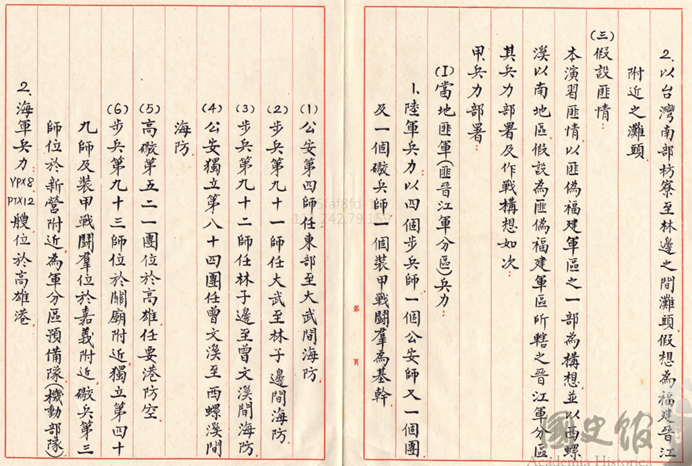 2.以台灣南部枋寮至林邊之間灘頭假想為福建晉江
附近之灘頭
(三)假設匪情：
本演習匪情以匪偽福建軍區之一部為構想並以西螺
溪以南地區假設為匪偽福建軍區所轄之晉江軍分區
其兵力部署及作戰構想如次：
甲、兵力部署：
(I)當地匪軍(匪晉江軍分區)兵力：
1.陸軍兵力以四個步兵師一個公安師又一個團
及一個礮兵師一個裝甲戰鬪羣為基幹
第 頁
(1)公安第四師任東部至大武間海防
(2)步兵第九十一師任大武至林子邊間海防
(3)步兵第九十二師任林子邊至曾文溪間海防
(4)公安獨立第八十四團任曾文溪至西螺溪間
海防
(5)高礮第五二一團位於高雄任要港防空
(6)步兵第九十三師位於關廟附近獨立第四十
九師及裝甲戰鬪羣位於嘉義附近礮兵第三
師位於新營附近為軍分區預備隊(機動部隊)
2.海軍兵力YPX8 PTX12艘位於高雄港
國史館
Academia Historica